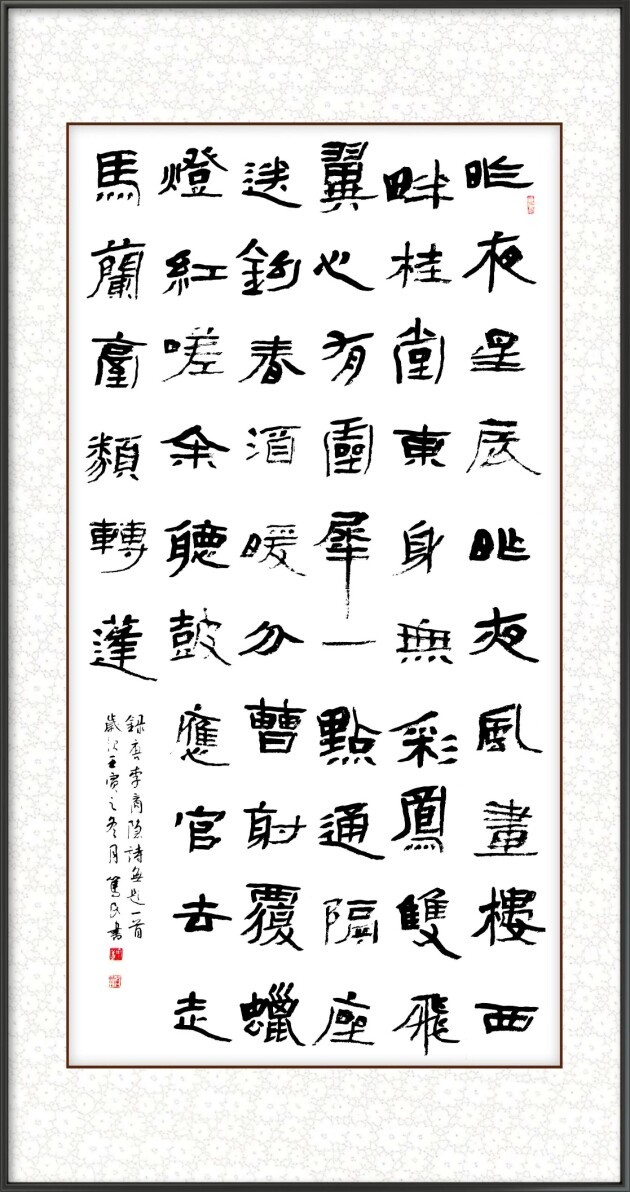 昨夜星辰昨夜風畫樓西
畔桂堂東身無彩鳳雙飛
翼心有靈犀一點通隔座
送鉤春酒暖分曹射覆蠟
燈紅嗟余聽鼓應官去走
馬蘭臺類轉蓬
錄唐李商隐詩無題一首
歲次壬寅之冬月篤民書